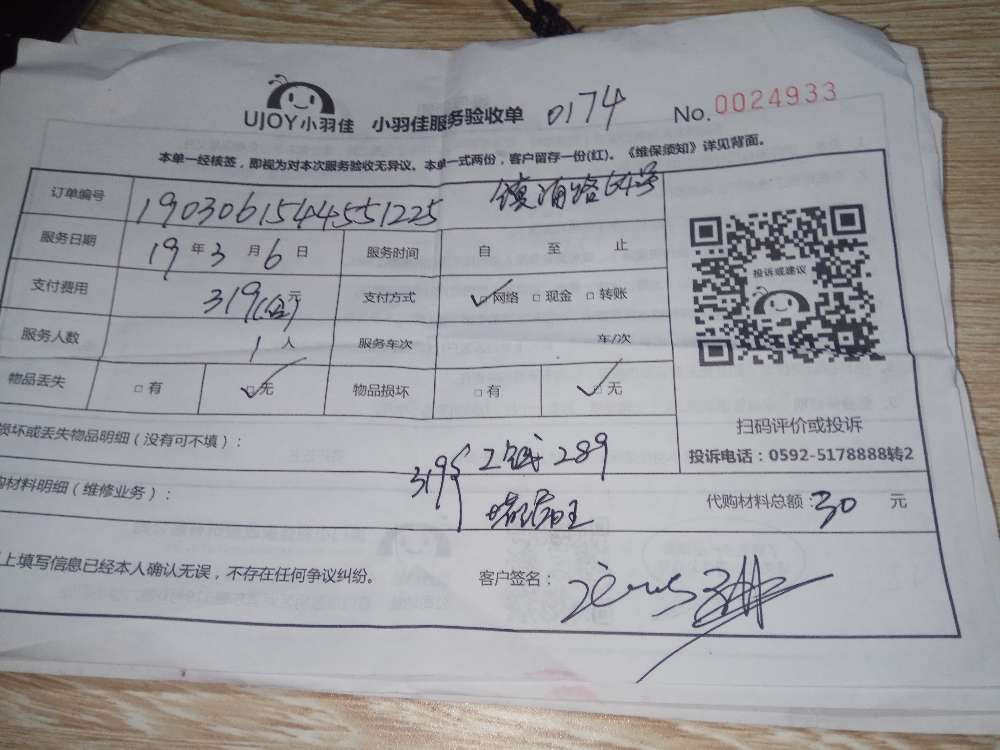 UJOY小羽佳 小羽佳服务验收单 0174 No.0024933
本单一经核签，即视为对本次服务验收无异议。本单一式两份，客户留存一份(红)。《维保须知》详见背面。
订单编号 1903061544551225 镇海路64号
服务日期 19年3月6日 服务时间 自 至 止
支付费用 319 元 支付方式 ☑网络 □现金 □转账
投诉或建议
服务人数 1人 服务车次 车/次
物品丢失 □有 ☑无 物品损坏 □有 ☑无
损坏或丢失物品明细（没有可不填）：
扫码评价或投诉
投诉电话：0592-5178888转2
319 工钱 289
购材料明细（维修业务）：
代购材料总额：30 元
上填写信息已经本人确认无误，不存在任何争议纠纷。 客户签名：